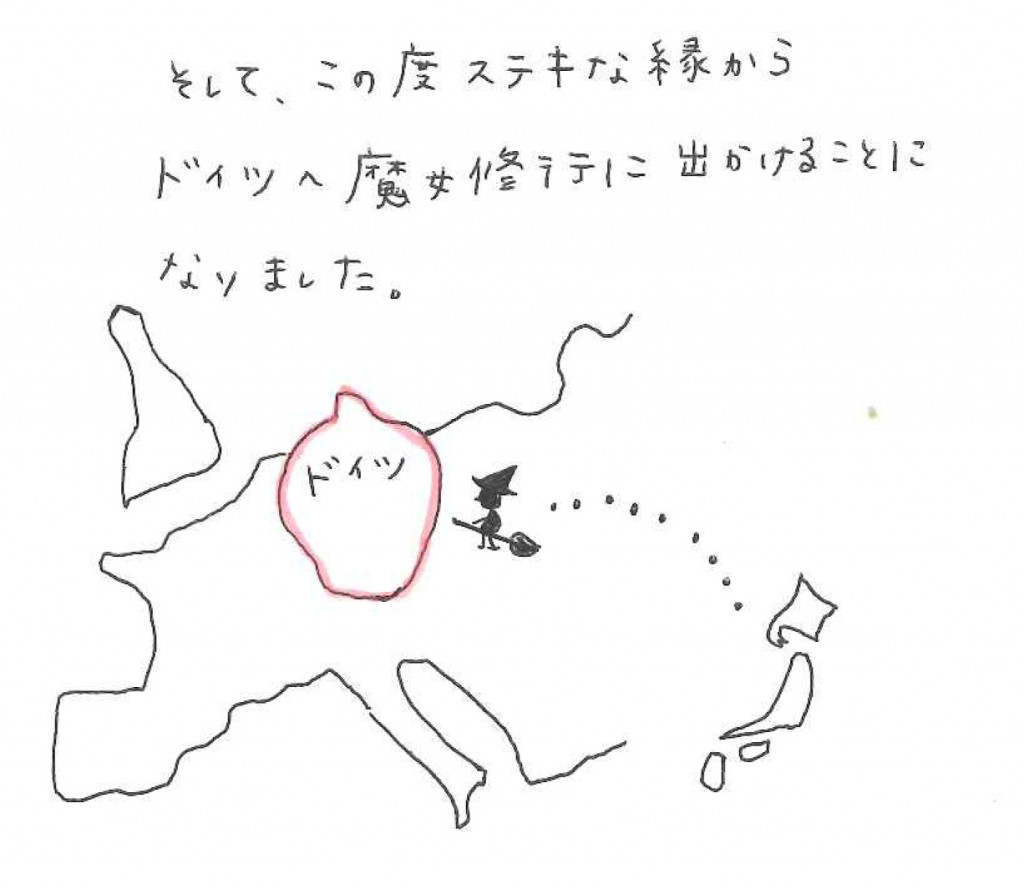 そして、この度ステキな縁から
ドイツへ魔女修行に出かけることに
なりました。
ドイツ